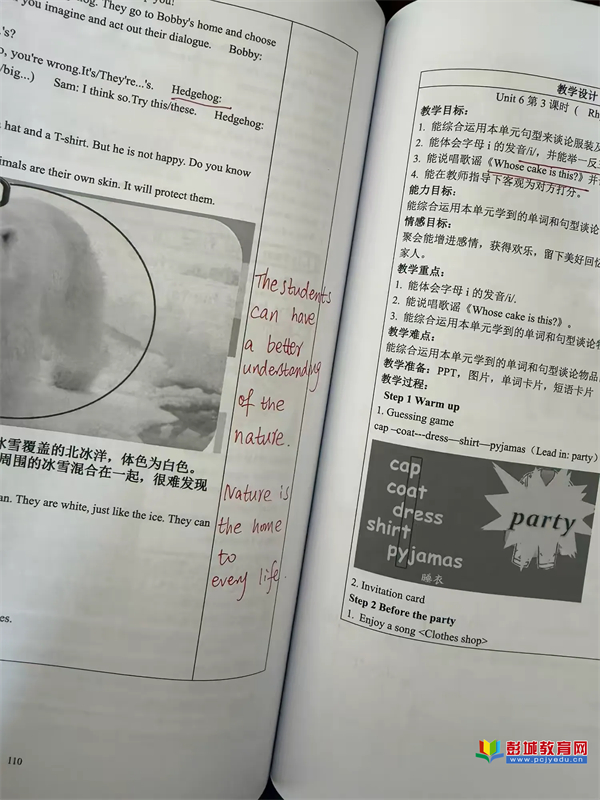 you!
og. They go to Bobby's home and choose
you imagine and act out their dialogue. Bobby:
.'s?
o, you're wrong.It's/They're...'s. Hedgehog:
/big...) Sam: I think so.Try this/these. Hedgehog:
hat and a T-shirt. But he is not happy. Do you know
imals are their own skin. It will protect them.
The students
can have
a better
understanding
of the
nature.
冰雪覆盖的北冰洋，体色为白色。
周围的冰雪混合在一起，很难发现
an. They are white, just like the ice. They can
Nature is
the home
to
every life.
es.
110
教学设计
Unit 6 第 3 课时 ( Rh
教学目标：
1. 能综合运用本单元句型来谈论服装及
2. 能体会字母 i 的发音/i/，并能举一反三
3. 能说唱歌谣《Whose cake is this?》并
4. 能在教师指导下客观为对方打分。
能力目标：
能综合运用本单元学到的单词和句型谈论
情感目标：
聚会能增进感情，获得欢乐，留下美好回忆
家人。
教学重点：
1. 能体会字母 i 的发音/i/.
2. 能说唱歌谣《Whose cake is this?》。
3. 能综合运用本单元学到的单词和句型谈论物
教学难点：
能综合运用本单元学到的单词和句型谈论物品
教学准备：PPT，图片，单词卡片，短语卡片
教学过程：
Step 1 Warm up
1. Guessing game
cap –coat---dress—shirt—pyjamas（Lead in: party）
cap
coat
dress
shirt
pyjamas
睡衣
party
2. Invitation card
Step 2 Before the party
1. Enjoy a song <Clothes shop>
彭城教育网
www.pcjyedu.cn